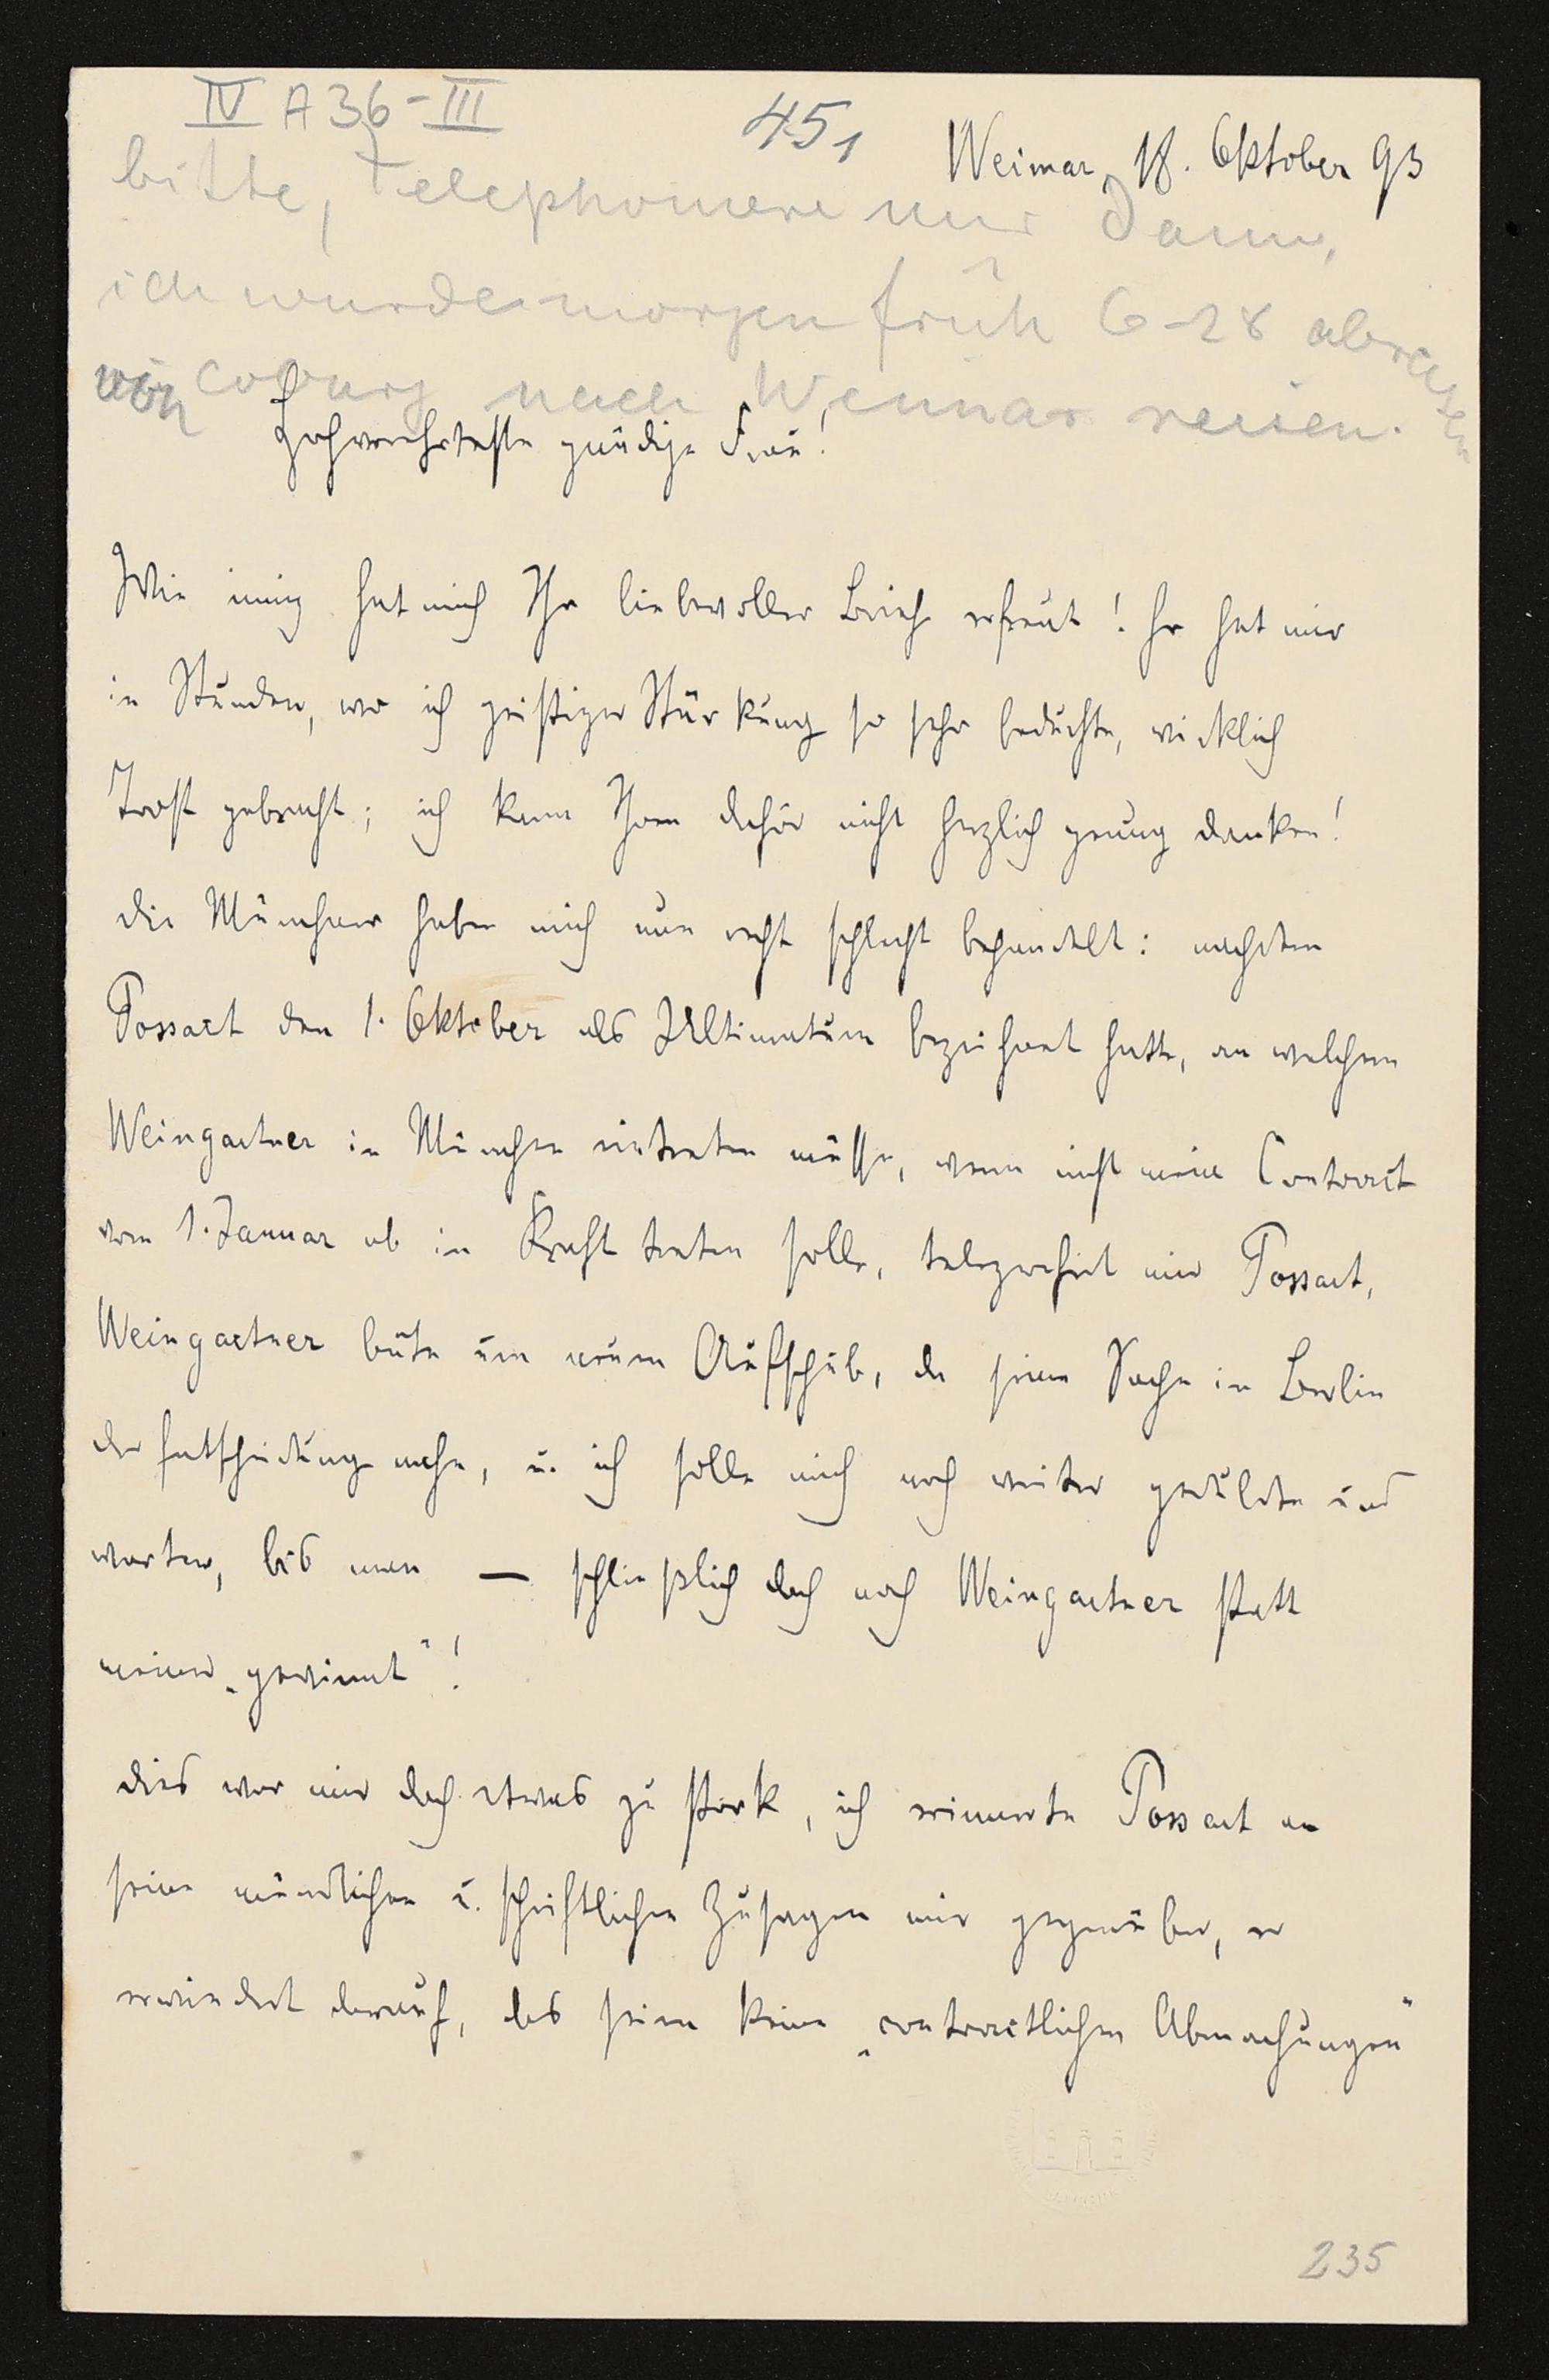 IV A 36-III
45,
Weimar, 18. Oktober 93
bitte, telephoniere nur dann,
ich wurde morgen früh 6-28 abreisen
von Coburg nach Weimar reisen.
Hochverehrteste gnädige Frau!
Wie innig hat mich Ihr liebevoller Brief erfreut! Er hat mir
in Stunden, wo ich geistiger Stärkung so sehr bedurfte, wirklich
Trost gebracht; ich kann Ihnen dafür nicht herzlich genug danken!
Die Münchner haben mich nun recht schlecht behandelt: nachdem
Possart den 1. Oktober als Ultimatum bezeichnet hatte, an welchem
Weingartner in München eintreten müsse, wenn nicht mein Contract
vom 1. Januar ab in Kraft treten solle, telegrafiert mir Possart,
Weingartner bäte um neuen Aufschub, da seine Sache in Berlin
der Entscheidung nahe, u. ich solle mich noch weiter gedulden und
warten, bis man — schließlich doch noch Weingartner statt
meiner „gewinnt"!
Dies war mir doch etwas zu stark, ich erinnerte Possart an
seine mündlichen u. schriftlichen Zusagen mir gegenüber, er
erwiedert darauf, das seien keine „contractlichen Abmachungen"
235